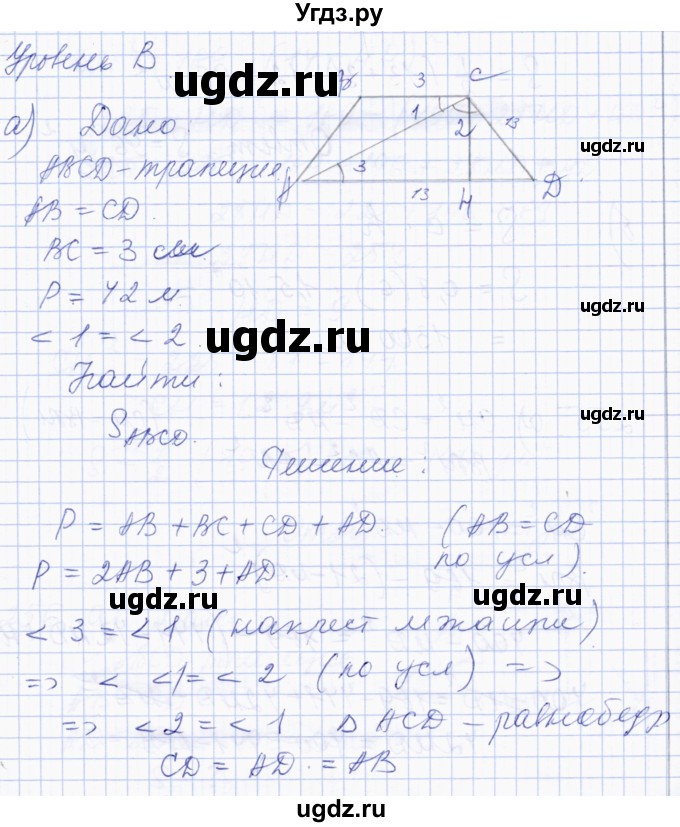 Угдз.ру
Уровень В
ugdz.ru
B 3 C
а) Дано:
1 2 13
ugdz.ru
ABCD - трапеция
3
AB = CD.
13 H D
BC = 3 см
P = 42 м
ugdz.ru
< 1 = < 2
ugdz.ru
Найти:
ugdz.ru
S ABCD.
Решение:
P = AB + BC + CD + AD. (AB = CD
P = 2AB + 3 + AD. по усл)
ugdz.ru ugdz.ru
< 3 = < 1 (накрест лежащие)
=> < <1 = < 2 (по усл) =>
=> < 2 = < 1 Δ ACD - равнобедр
CD = AD = AB
ugdz.ru